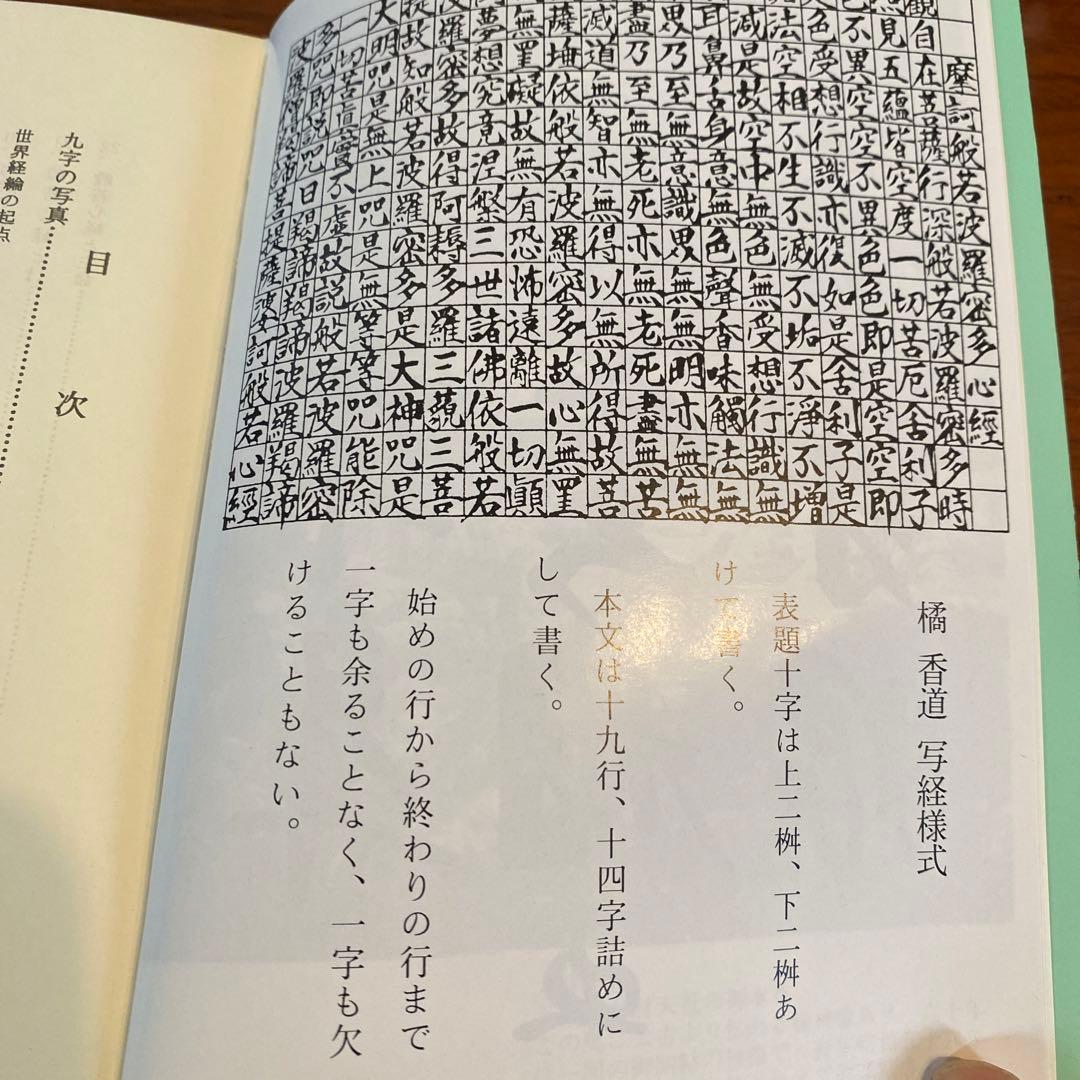 摩訶般若波羅密多心經
觀自在菩薩行深般若波羅密多時
見五蘊皆空度一切苦厄舍利子
不異空空不異色色即是空空即
色受想行識亦復如是舍利子是
法空相不生不滅不垢不淨不增
減是故空中無色無受想行識無
耳鼻舌身意無色聲香味觸法無
界乃至無意識界無無明亦無無
盡乃至無老死亦無老死盡無苦
滅道無智亦無得以無所得故菩
薩埵依般若波羅密多故心無罣
無罣礙故無有恐怖遠離一切顛
夢想究竟涅槃三世諸佛依般若
羅密多故得阿耨多羅三藐三菩
提故知般若波羅密多是大神咒是
大明咒是無上咒是無等等咒能除
一切苦眞實不虛故說般若波羅密
多咒即說咒曰羯諦羯諦波羅羯諦
波羅僧羯諦菩提薩婆訶般若心經
橘 香道 写経様式
表題十字は上二桝、下二桝あ
けて書く。
本文は十九行、十四字詰めに
して書く。
始めの行から終わりの行まで
一字も余ることなく、一字も欠
けることもない。
目 次
九字の写真
世界経綸の起点